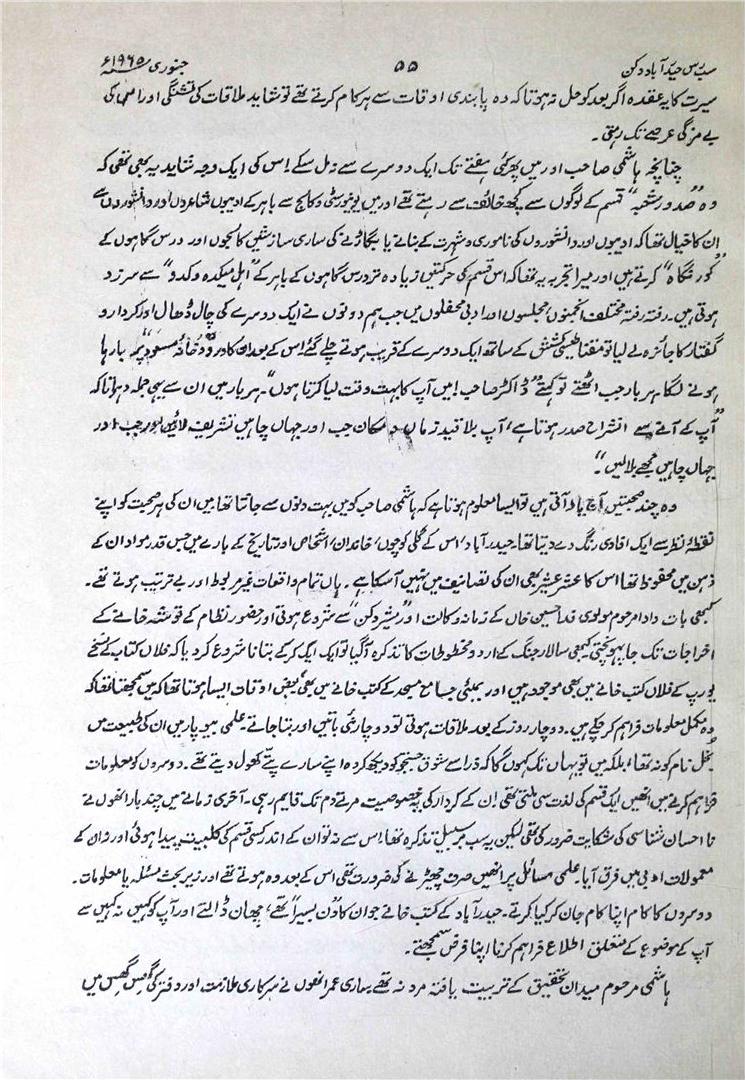 سب رس حیدرآباد دکن
۵۵
جنوری ۱۹۶۵ء
سیرت کا یہ عقدہ اگر بعد کو حل نہ ہوتا کہ وہ پابندی اوقات سے ہر کام کرتے تھے تو شاید ملاقات کی تشنگی اور اس کی
بے مزگی عرصے تک رہتی۔
چنانچہ ہاشمی صاحب اور میں پھر کئی ہفتے تک ایک دوسرے سے نہ مل سکے۔ اس کی ایک وجہ شاید یہ بھی تھی کہ
وہ "صدورِ شعبہ" قسم کے لوگوں سے کچھ خائف سے رہتے تھے اور میں یونیورسٹی و کالج سے باہر کے ادیبوں شاعروں اور دانشوروں سے
ان کا خیال تھا کہ ادیبوں اور دانشوروں کی ناموری و شہرت کے بنانے یا بگاڑنے کی ساری ساز شیں کالجوں اور درس گاہوں کے
گاہ" کرتے ہیں اور میرا تجربہ یہ تھا کہ اس قسم کی حرکتیں زیادہ تر درس گاہوں کے باہر کے "اہل میکدہ و کدو" سے سرزد
ہوتی ہیں۔ رفتہ رفتہ مختلف انجمنوں مجلسوں اور ادبی محفلوں میں جب ہم دونوں نے ایک دوسرے کی چال ڈھال اور کردار و
گفتار کا جائزہ لے لیا تو مقناطیسی کشش کے ساتھ ایک دوسرے کے قریب ہوتے چلے گئے۔ اس کے بعد ان کا ورود خانۂ مسعود" پر بارہا
ہونے لگا۔ ہر بار جب اٹھتے تو کہتے "ڈاکٹر صاحب! میں آپ کا بہت وقت لیا کرتا ہوں"۔ ہر بار میں ان سے یہی جملہ دہراتا کہ
"آپ کے آنے سے انشراح صدر ہوتا ہے، آپ بلا قید زماں و مکان جب اور جہاں چاہیں تشریف لائیں اور جب اور
جہاں چاہیں مجھے بلالیں۔"
وہ چند صحبتیں آج یاد آتی ہیں تو ایسا معلوم ہوتا ہے کہ ہاشمی صاحب کو میں بہت دنوں سے جانتا تھا میں ان کی ہر صحبت کو اپنے
نقطۂ نظر سے ایک افادی رنگ دے دیتا تھا۔ حیدرآباد، اس کے گلی کوچوں، خاندان، اشخاص اور تاریخ کے بارے میں جس قدر مواد ان کے
ذہن میں محفوظ تھا اس کا عشر عشیر بھی ان کی تصانیف میں نہیں آسکا ہے۔ ہاں تمام واقعات غیر مربوط اور بے ترتیب ہوتے تھے۔
کبھی بات دادا مرحوم مولوی فدا حسین خاں کے زمانۂ وکالت اور "مشیر دکن" سے شروع ہوتی اور حضور نظام کے توشہ خانے کے
اخراجات تک جا پہونچتی۔ کبھی سالار جنگ کے اردو مخطوطات کا تذکرہ آگیا تو ایک ایک کرکے بتانا شروع کردیا کہ فلاں کتاب کے نسخے
یورپ کے فلاں کتب خانے میں بھی موجود ہیں اور بمبئی جامع مسجد کے کتب خانے میں بھی، بعض اوقات ایسا ہوتا تھا کہ میں سمجھتا تھا کہ
وہ مکمل معلومات فراہم کرچکے ہیں۔ دوچار روز کے بعد ملاقات ہوتی تو دوچار نئی باتیں اور بتا جاتے۔ علمی بیوپار میں ان کی طبیعت میں
بخل نام کو نہ تھا، بلکہ میں تو یہاں تک کہوں گا کہ ذرا سے شوق جستجو کو دیکھ کر وہ اپنے سارے پتے کھول دیتے تھے۔ دوسروں کو معلومات
فراہم کرنے میں انھیں ایک قسم کی لذت سی ملتی تھی۔ ان کے کردار کی یہ خصوصیت مرتے دم تک قایم رہی۔ آخری زمانے میں چند بار انھوں نے
نا احسان شناسی کی شکایت ضرور کی تھی لیکن یہ سب بر سبیل تذکرہ تھا۔ اس سے نہ تو ان کے اندر کسی قسم کی کلبیت پیدا ہوئی اور نہ ان کے
معمولات ادبی میں فرق آیا۔ علمی مسائل پر انھیں صرف چھیڑنے کی ضرورت تھی اس کے بعد وہ ہوتے تھے اور زیر بحث مسئلہ یا معلومات۔
دوسروں کا کام اپنا کام جان کر کیا کرتے۔ حیدرآباد کے کتب خانے جو ان کا "دن بسیرا" تھے، چھان ڈالتے اور آپ کو کہیں نہ کہیں سے
آپ کے موضوع کے متعلق اطلاع فراہم کرنا اپنا فرض سمجھتے۔
ہاشمی مرحوم میدان تحقیق کے تربیت یافتہ مرد نہ تھے۔ ساری عمر انھوں نے سرکاری ملازمت اور دفتر کی گھس گھس میں